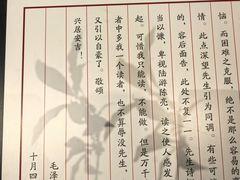 恼。而困难之克服，绝不是那么容易的
情。此点深望先生引为同调。有些可
的，容后面告，此处不复一一。先生诗
当以慷，卑视陆游陈亮，读之使人感发
起。可惜我只能读，不能做。但是万千
者中多我一个读者，也不算辱没先生，
又引以自豪了。敬颂
兴居安吉！
毛泽
十月四